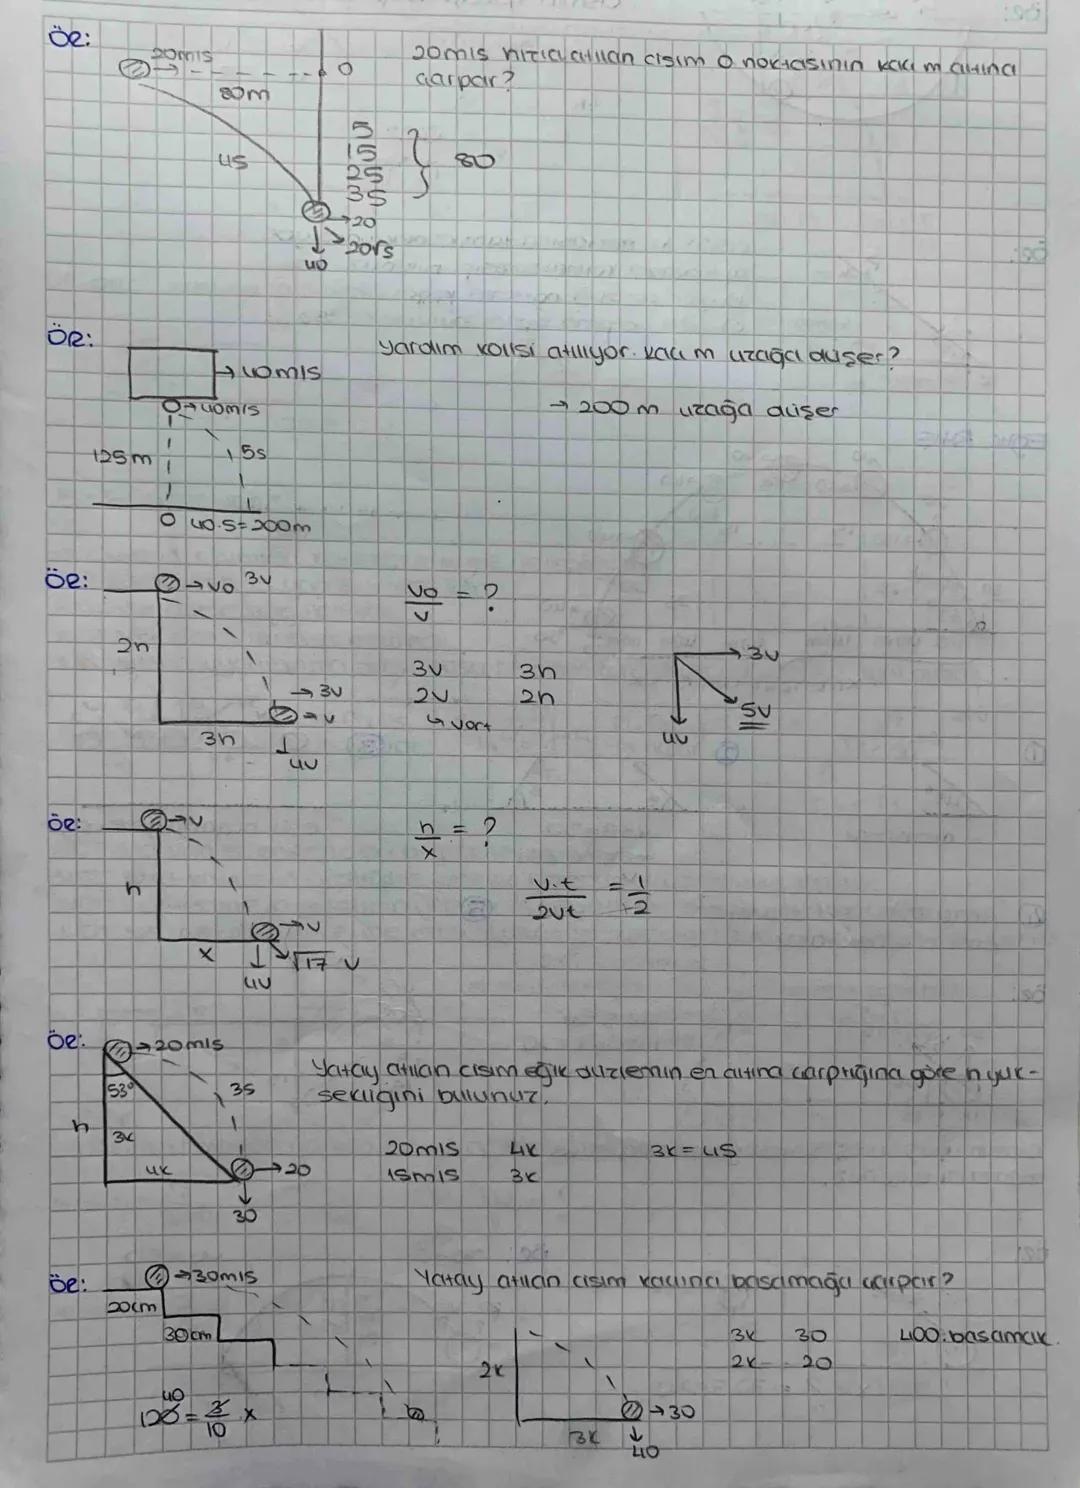 ÖR:
20m/s
80m
O
20m/s hızla atılan cisim O noktasının kaç m altına
çarpar?
4s
5
15
25
35
80
20
20√5
40
ÖR:
Yardım kolisi atılıyor. Kaç m uzağa düşer?
40m/s
40m/s
→ 200 m uzağa düşer
125m
5s
O 40.5=200m
ÖR:
V0 3V
V0/V = ?
2h
3V 3h
2V 2h
↳ Vort
3V
V
3h
4V
3V
5V
4V
ÖR:
V
h/x = ?
h
V.t/2Vt = 1/2
V
x
√17 V
4V
ÖR:
20m/s
Yatay atılan cisim eğik düzlemin en altına çarptığına göre h yük-
sekliğini bulunuz.
53°
3s
h
3k
4k
20
30
20m/s 4k
15m/s 3k
3k = 45
ÖR:
30m/s
Yatay atılan cisim kaçıncı basamağa çarpar?
20cm
30cm
2k
3k 30
2k 20
400.basamak.
40
120 = 3/10 x
30
3k
40